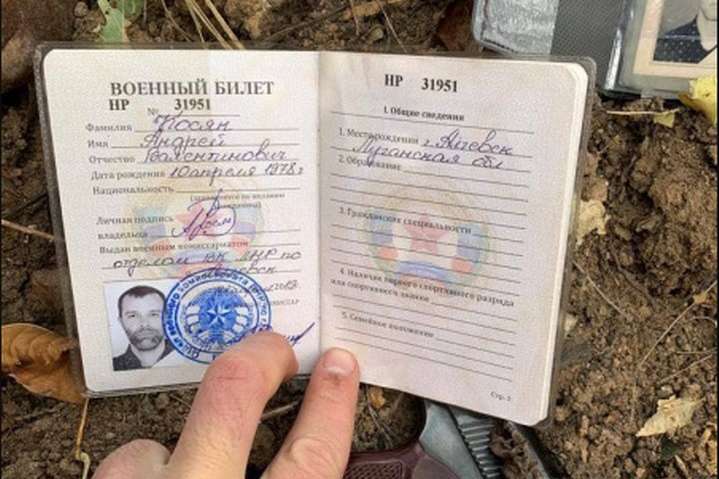 ВОЕННЫЙ БИЛЕТ
НР 31951
№
Фамилия Косян
Имя Андрей
Отчество Валентинович
Дата рождения 10 апреля 1978 г
Национальность
(заполняется по желанию
Личная подпись
владельца
Выдан военным комиссариатом
отделом ВК ЛНР по
НР 31951
I. Общие сведения
1. Место рождения г. Алчевск
Луганская обл
2. Образование
3. Гражданские специальности
4. Наличие первого спортивного разряда
или спортивного звания
5. Семейное положение